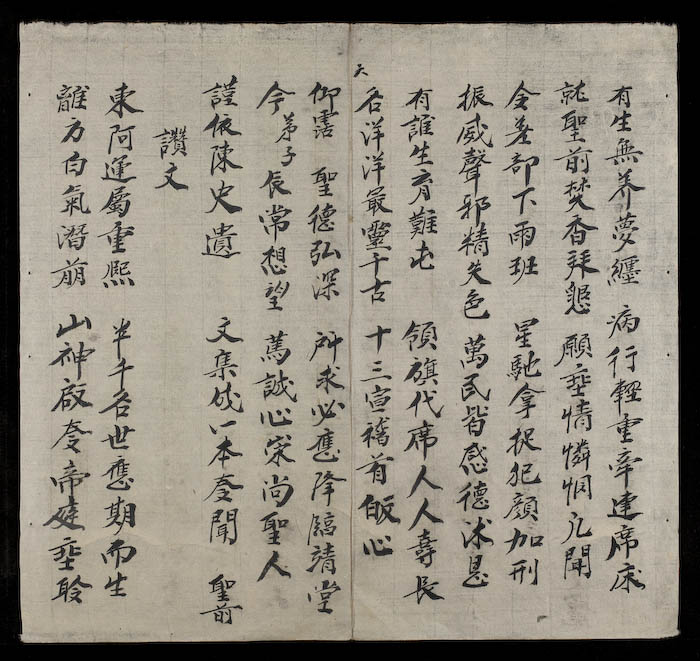 有生無养夢纏 病行輕重牵連席床
就聖前焚香拜懇 願垂情憐憫凢聞
令差部下雨班 星馳拿捉犯顔加刑
振威聲邪精失色 萬民皆感德沭恩
有誰生育難屯 領旗代席人人壽長
天
名洋洋最靈千古 十三宣稽首皈心
仰霑 聖德弘深 所求必應降臨靖堂
今弟子辰常想望 篤誠心崇尚聖人
謹依陳史遺 文集成一本奎聞 聖前
讚文
東阿運屬重熙 半千名世應期而生
離方白氣潛崩 山神啟奎帝庭垂聆